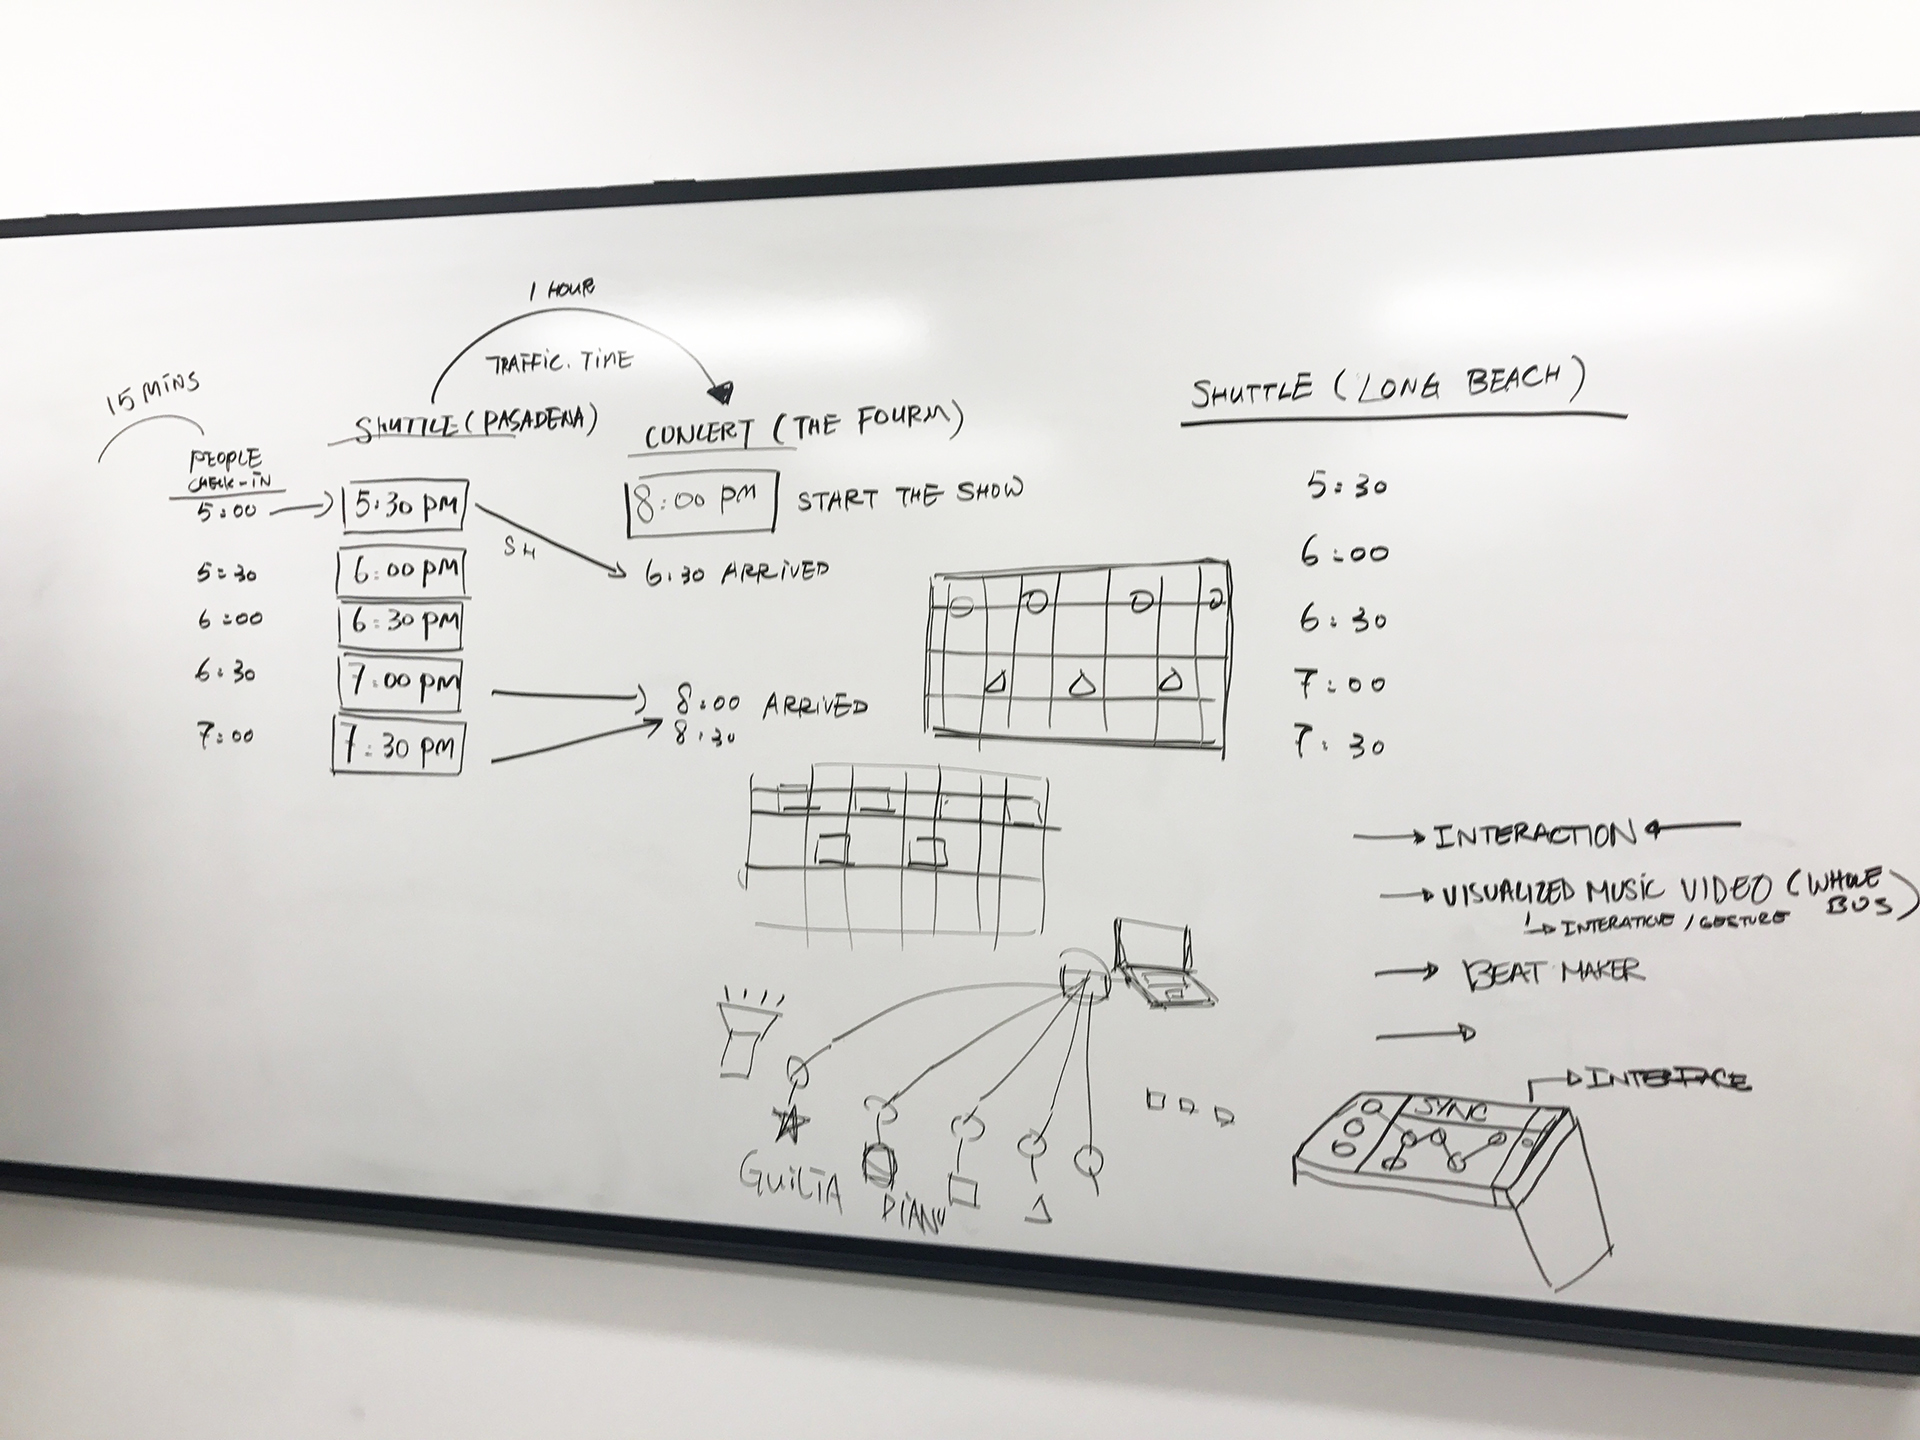 1 HOUR
TRAFFIC. TIME
15 MINS
PEOPLE
CHECK-IN
SHUTTLE (PASADENA)
CONCERT (THE FOURM)
5:00
5:30 PM
8:00 PM START THE SHOW
SH
5:30
6:00 PM
6:30 ARRIVED
6:00
6:30 PM
6:30
7:00 PM
8:00 ARRIVED
7:00
7:30 PM
8:30
SHUTTLE (LONG BEACH)
5:30
6:00
6:30
7:00
7:30
INTERACTION
VISUALIZED MUSIC VIDEO (WHOLE
BUS)
INTERATIVE / GESTURE
BEAT MAKER
INTERFACE
SYNC
GUILTA
PIANO